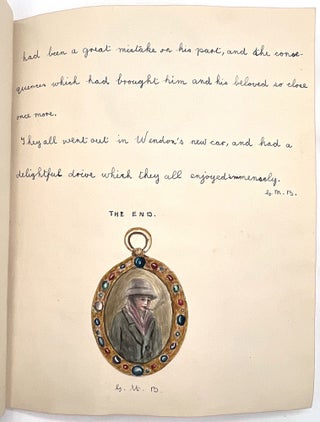 had been a great mistake on his part, and the conse-
quences which had brought him and his beloved so close
once more.
They all went out in Wendon's new car, and had a
delightful drive which they all enjoyed immensely.
G. M. B.
THE END.
G. M. B.